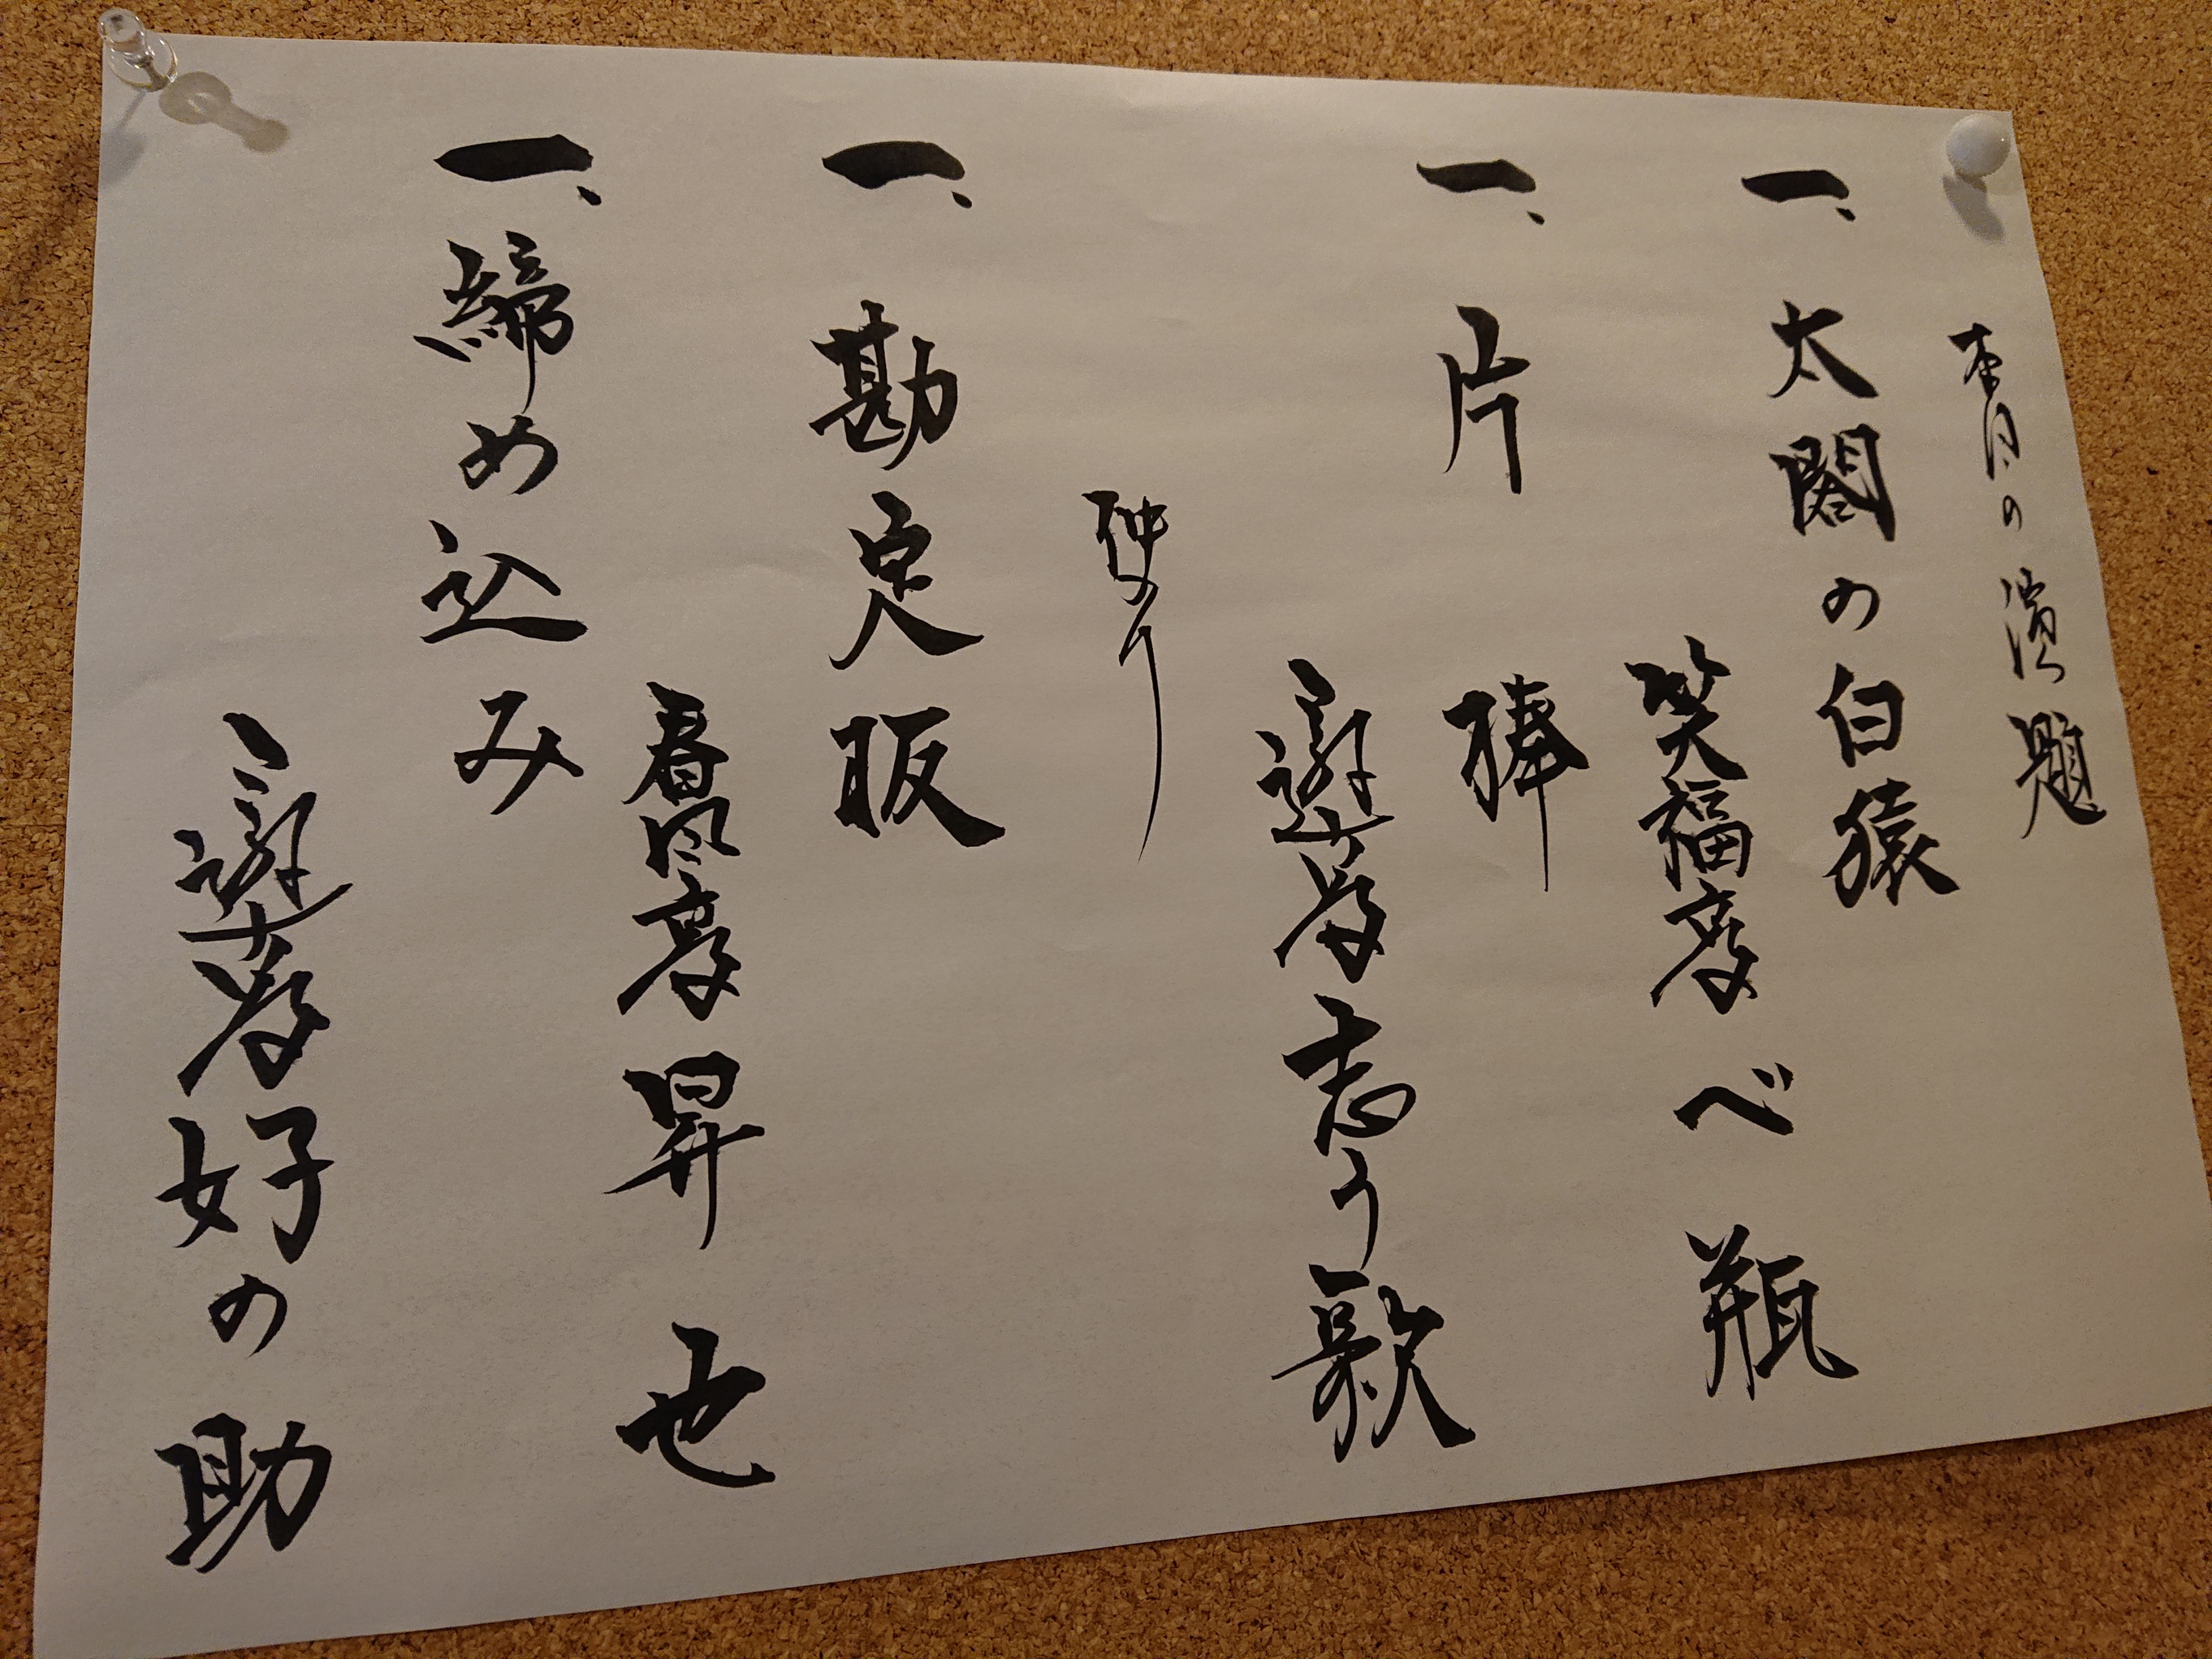 本日の演題
一、太閤の白猿
笑福亭べ瓶
一、片棒
三遊亭志う歌
仲入り
一、勘定板
春風亭昇也
一、締め込み
三遊亭好の助